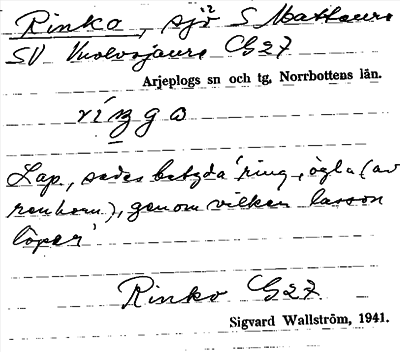 Rinko, sjö S Mattaure
SV Vuolvojaure G27
Arjeplogs sn och tg, Norrbottens län.
ríŋgo
Lap., sades betyda 'ring, ögla (av
renhorn), genom vilken lasson
löper'
Rinko G27
Sigvard Wallström, 1941.